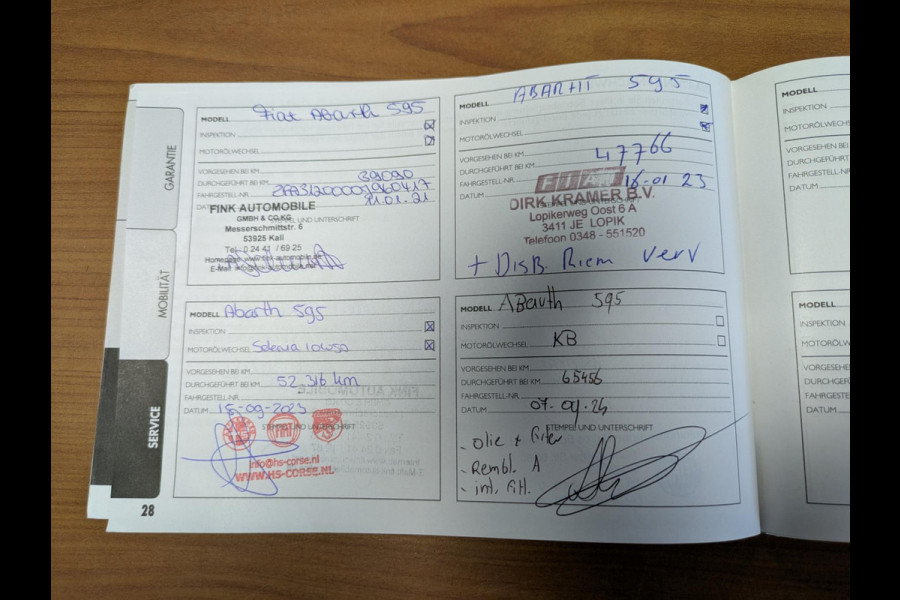 GARANTIE
MOBILITÄT
SERVICE
28
MODELL Fiat Abarth 595
INSPEKTION
MOTORÖLWECHSEL
VORGESEHEN BEI KM
DURCHGEFÜHRT BEI KM 39090
FAHRGESTELL-NR.
DATUM 21.01.21
FINK AUTOMOBILE
GMBH & CO.KG
STEMPEL UND UNTERSCHRIFT
Messerschmittstr. 6
53925 Kall
Tel. 0 24 41 / 69 25
MODELL ABARTH 595
INSPEKTION
MOTORÖLWECHSEL
VORGESEHEN BEI KM
DURCHGEFÜHRT BEI KM 47766
FAHRGESTELL-NR.
DATUM 16-01 23
FIAT
DIRK KRAMER B.V.
Lopikerweg Oost 6 A
3411 JE LOPIK
Telefoon 0348 - 551520
+ DisB. Riem verv
MODELL Abarth 595
INSPEKTION
MOTORÖLWECHSEL Selenia 10W50
VORGESEHEN BEI KM
DURCHGEFÜHRT BEI KM 52.316 km
FAHRGESTELL-NR.
DATUM 15-09-2023
STEMPEL UND UNTERSCHRIFT
FIAT
info@hs-corse.nl
WWW.HS-CORSE.NL
MODELL Abarth 595
INSPEKTION
MOTORÖLWECHSEL KB
VORGESEHEN BEI KM
DURCHGEFÜHRT BEI KM 65456
FAHRGESTELL-NR.
DATUM 07.04.24
STEMPEL UND UNTERSCHRIFT
- Olie + Filter
- Rembl. A
- int. Filt.
MODELL
INSPEKTION
MOTORÖLWECHS
VORGESEHEN BEI
DURCHGEFÜHRT
FAHRGESTELL-NR
DATUM
MODELL
INSPEKTION
MOTORÖLW
VORGESEHEN
DURCHGEFÜH
FAHRGESTELL
DATUM